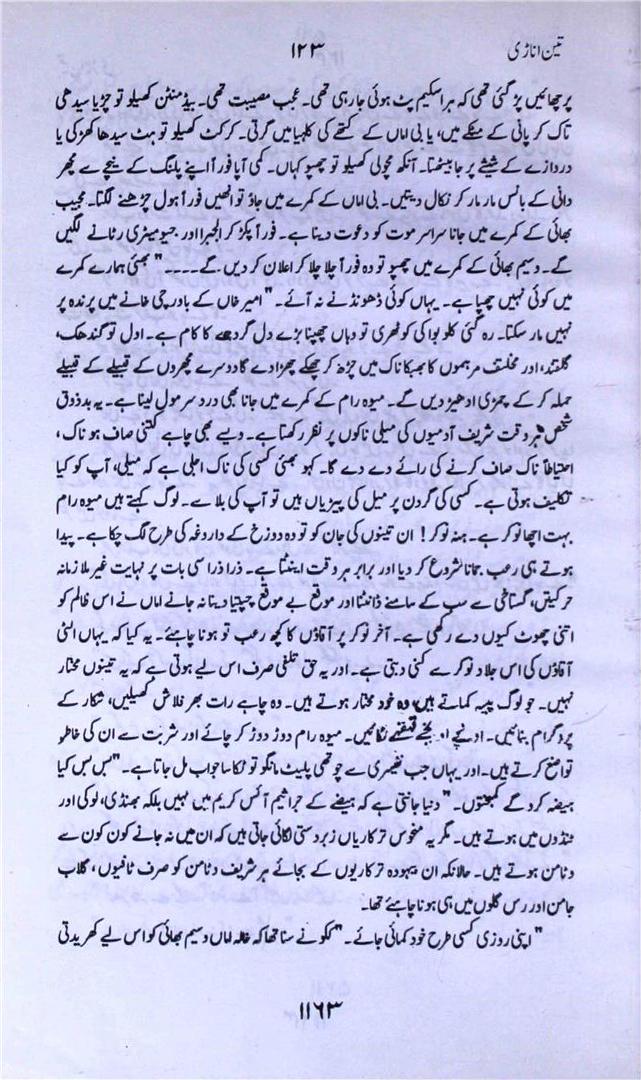 تین اناڑی ۱۲۳
پرچھائیں پڑ گئی تھی کہ ہر اسکیم پٹ ہوئی جارہی تھی۔ عجب مصیبت تھی۔ بیڈمنٹن کھیلو تو چڑیا سیدھی
تاک کر پانی کے مٹکے میں، یا بی اماں کے کتھے کی کلھیا میں گرتی۔ کرکٹ کھیلو تو ہٹ سیدھا کھڑکی یا
دروازے کے شیشے پر جا بیٹھتا۔ آنکھ مچولی کھیلو تو چھپو کہاں۔ کمی آپا فوراً اپنے پلنگ کے نیچے سے مچھر
دانی کے بانس مار مار کر نکال دیتیں۔ بی اماں کے کمرے میں جاؤ تو انھیں فوراً ہول چڑھنے لگتا۔ مجیب
بھائی کے کمرے میں جانا سراسر موت کو دعوت دینا ہے۔ فوراً پکڑ کر الجبرا اور جیومیٹری رٹانے لگیں
گے۔ وسیم بھائی کے کمرے میں چھپو تو وہ فوراً چلا چلا کر اعلان کر دیں گے۔۔۔۔ "بھئی ہمارے کمرے
میں کوئی نہیں چھپا ہے۔ یہاں کوئی ڈھونڈنے نہ آئے۔" امیر خاں کے باورچی خانے میں پرندہ پر
نہیں مار سکتا۔ رہ گئی کلو بوا کی کوٹھری تو وہاں چھپنا بڑے دل گردے کا کام ہے۔ اول تو گندھک،
گلقند، اور مختلف مرہموں کا بھپکا ناک میں چڑھ کر چھکے چھڑا دے گا دوسرے مچھروں کے قبیلے کے قبیلے
حملہ کر کے چمڑی ادھیڑ دیں گے۔ میوہ رام کے کمرے میں جانا بھی درد سر مول لینا ہے۔ یہ بدذوق
شخص ہر وقت شریف آدمیوں کی میلی ناکوں پر نظر رکھتا ہے۔ ویسے بھی چاہے کتنی صاف ہو ناک،
احتیاطاً ناک صاف کرنے کی رائے دے دے گا۔ کہو بھئی کسی کی ناک املی ہے کہ میلی، آپ کو کیا
تکلیف ہوتی ہے۔ کسی کی گردن پر میل کی پپڑیاں ہیں تو آپ کی بلا سے۔ لوگ کہتے ہیں میوہ رام
بہت اچھا نوکر ہے۔ ہنہ نوکر! ان تینوں کی جان کو تو وہ دوزخ کے داروغہ کی طرح لگ چکا ہے۔ پیدا
ہوتے ہی رعب جمانا شروع کر دیا اور برابر ہر وقت اینٹتا ہے۔ ذرا ذرا سی بات پر نہایت غیر ملازمانہ
حرکتیں، گستاخی سے سب کے سامنے ڈانٹنا اور موقع بے موقع چپتیا دینا نہ جانے اماں نے اس ظالم کو
اتنی چھوٹ کیوں دے رکھی ہے۔ آخر نوکر پر آقاؤں کا کچھ رعب تو ہونا چاہئے۔ یہ کیا کہ یہاں الٹی
آقاؤں کی اس جلاد نوکر سے کنی دبتی ہے۔ اور یہ حق تلفی صرف اس لیے ہوتی ہے کہ یہ تینوں مختار
نہیں۔ جو لوگ پیسہ کماتے ہیں وہ خود مختار ہوتے ہیں۔ وہ چاہے رات بھر فلاش کھیلیں، شکار کے
پروگرام بنائیں۔ اونچے اونچے قہقہے لگائیں۔ میوہ رام دوڑ دوڑ کر چائے اور شربت سے ان کی خاطر
تواضع کرتے ہیں۔ اور یہاں جب نفیسری سے چوتھی پلیٹ مانگو تو ٹکا سا جواب مل جاتا ہے۔ "بس بس کیا
ہیضہ کرو گے کمبختوں۔" دنیا جانتی ہے کہ ہیضے کے جراثیم آئس کریم میں نہیں بلکہ بھنڈی، لوکی اور
ٹنڈوں میں ہوتے ہیں۔ مگر یہ منحوس ترکاریاں زبردستی لگائی جاتی ہیں کہ ان میں نہ جانے کون کون سے
وٹامن ہوتے ہیں۔ حالانکہ ان بیہودہ ترکاریوں کے بجائے ہر شریف وٹامن کو صرف ٹافیوں، گلاب
جامن اور رس گلوں میں ہی ہونا چاہئے تھا۔
"اپنی روزی کسی طرح خود کمائی جائے۔" ککو نے سنا تھا کہ خالہ اماں وسیم بھائی کو اس لیے کھریدتی
۱۱۶۳